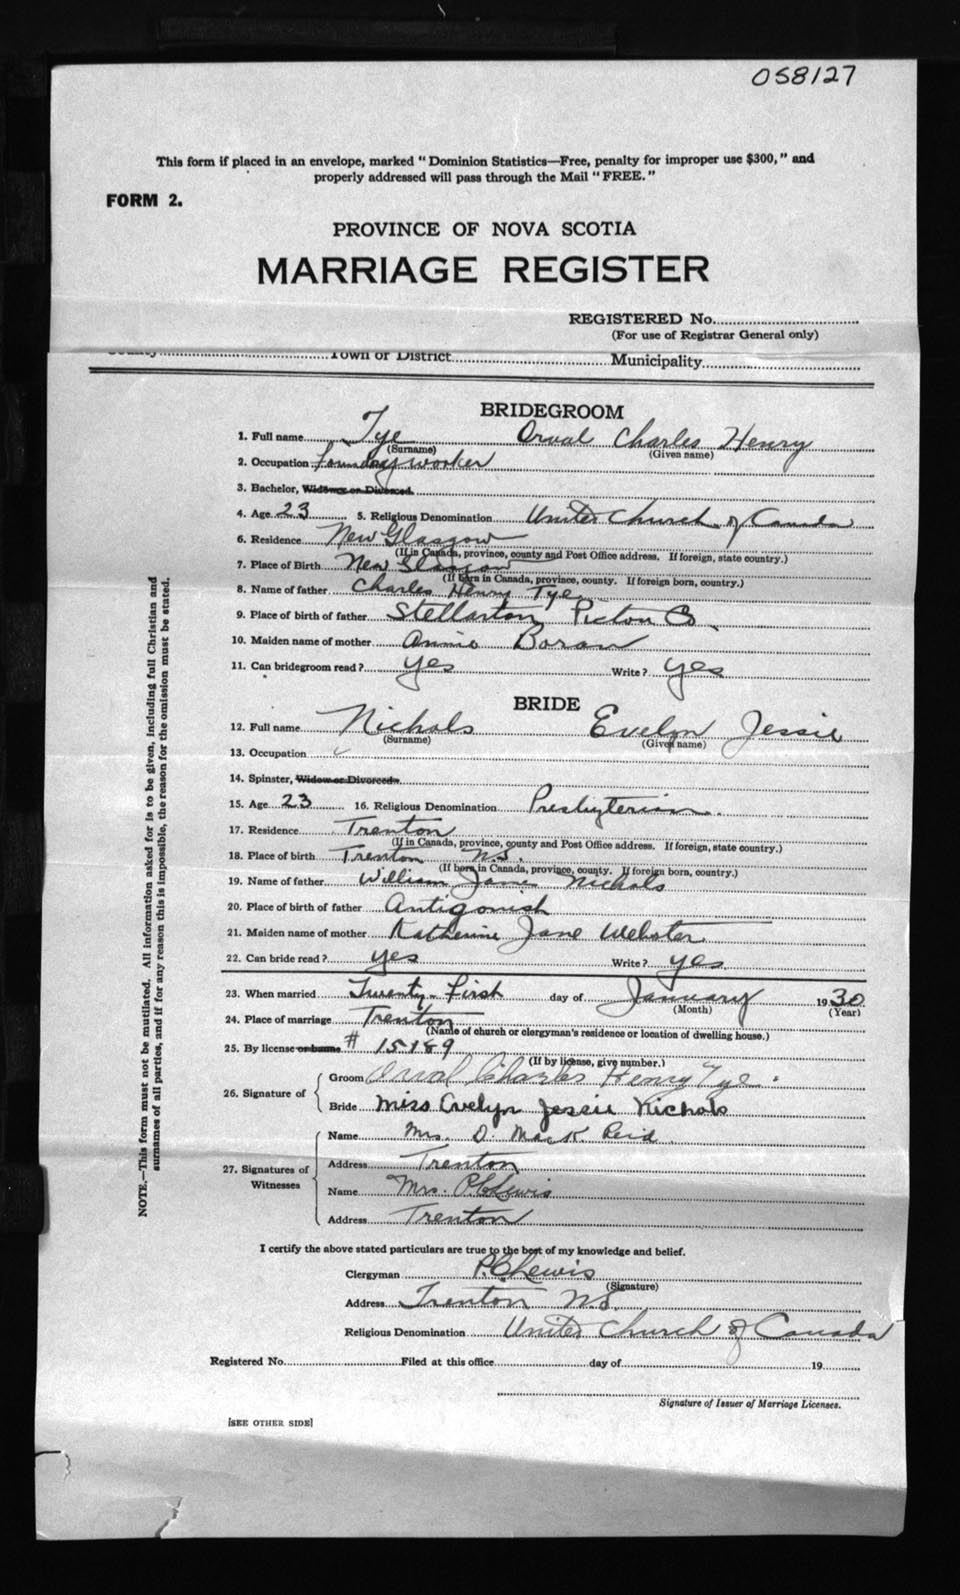 058127
This form if placed in an envelope, marked "Dominion Statistics—Free, penalty for improper use $300," and
properly addressed will pass through the Mail "FREE."
FORM 2.
PROVINCE OF NOVA SCOTIA
MARRIAGE REGISTER
REGISTERED No.
(For use of Registrar General only)
County Town or District Municipality
BRIDEGROOM
1. Full name Tye Orval Charles Henry
(Surname) (Given name)
2. Occupation foundry worker
3. Bachelor, Widower or Divorced.
4. Age 23 5. Religious Denomination United Church of Canada
6. Residence New Glasgow
(If in Canada, province, county and Post Office address. If foreign, state country.)
7. Place of Birth New Glasgow
(If born in Canada, province, county. If foreign born, country.)
8. Name of father Charles Henry Tye
9. Place of birth of father Stellarton Pictou Co
10. Maiden name of mother Annie
11. Can bridegroom read? yes Write? yes
BRIDE
12. Full name Nichols Evelyn Jessie
(Surname) (Given name)
13. Occupation
14. Spinster, Widow or Divorced.
15. Age 23 16. Religious Denomination Presbyterian
17. Residence Trenton
(If in Canada, province, county and Post Office address. If foreign, state country.)
18. Place of birth Trenton N.S.
(If born in Canada, province, county. If foreign born, country.)
19. Name of father William James Nichols
20. Place of birth of father Antigonish
21. Maiden name of mother Katherine Jane Webster
22. Can bride read? yes Write? yes
23. When married Twenty-First day of January 1930
(Month) (Year)
24. Place of marriage Trenton
(Name of church or clergyman's residence or location of dwelling house.)
25. By license or banns # 15189
(If by license, give number.)
26. Signature of
Groom Orval Charles Henry Tye
Bride Miss Evelyn Jessie Nichols
27. Signatures of Witnesses
Name Mrs. D. MacK Reid
Address Trenton
Name Mrs. P.C. Lewis
Address Trenton
I certify the above stated particulars are true to the best of my knowledge and belief.
Clergyman P.C. Lewis
(Signature)
Address Trenton N.S.
Religious Denomination United Church of Canada
Registered No. Filed at this office day of 19
Signature of Issuer of Marriage Licenses.
[SEE OTHER SIDE]
NOTE.—This form must not be mutilated. All information asked for is to be given, including full Christian and
surnames of all parties, and if for any reason this is impossible, the reason for the omission must be stated.